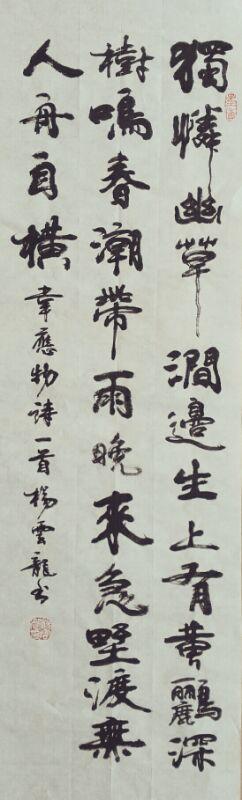 獨憐幽草澗邊生上有黃鸝深
樹鳴春潮帶雨晚來急野渡無
人舟自橫
韋應物詩一首楊雲龍書